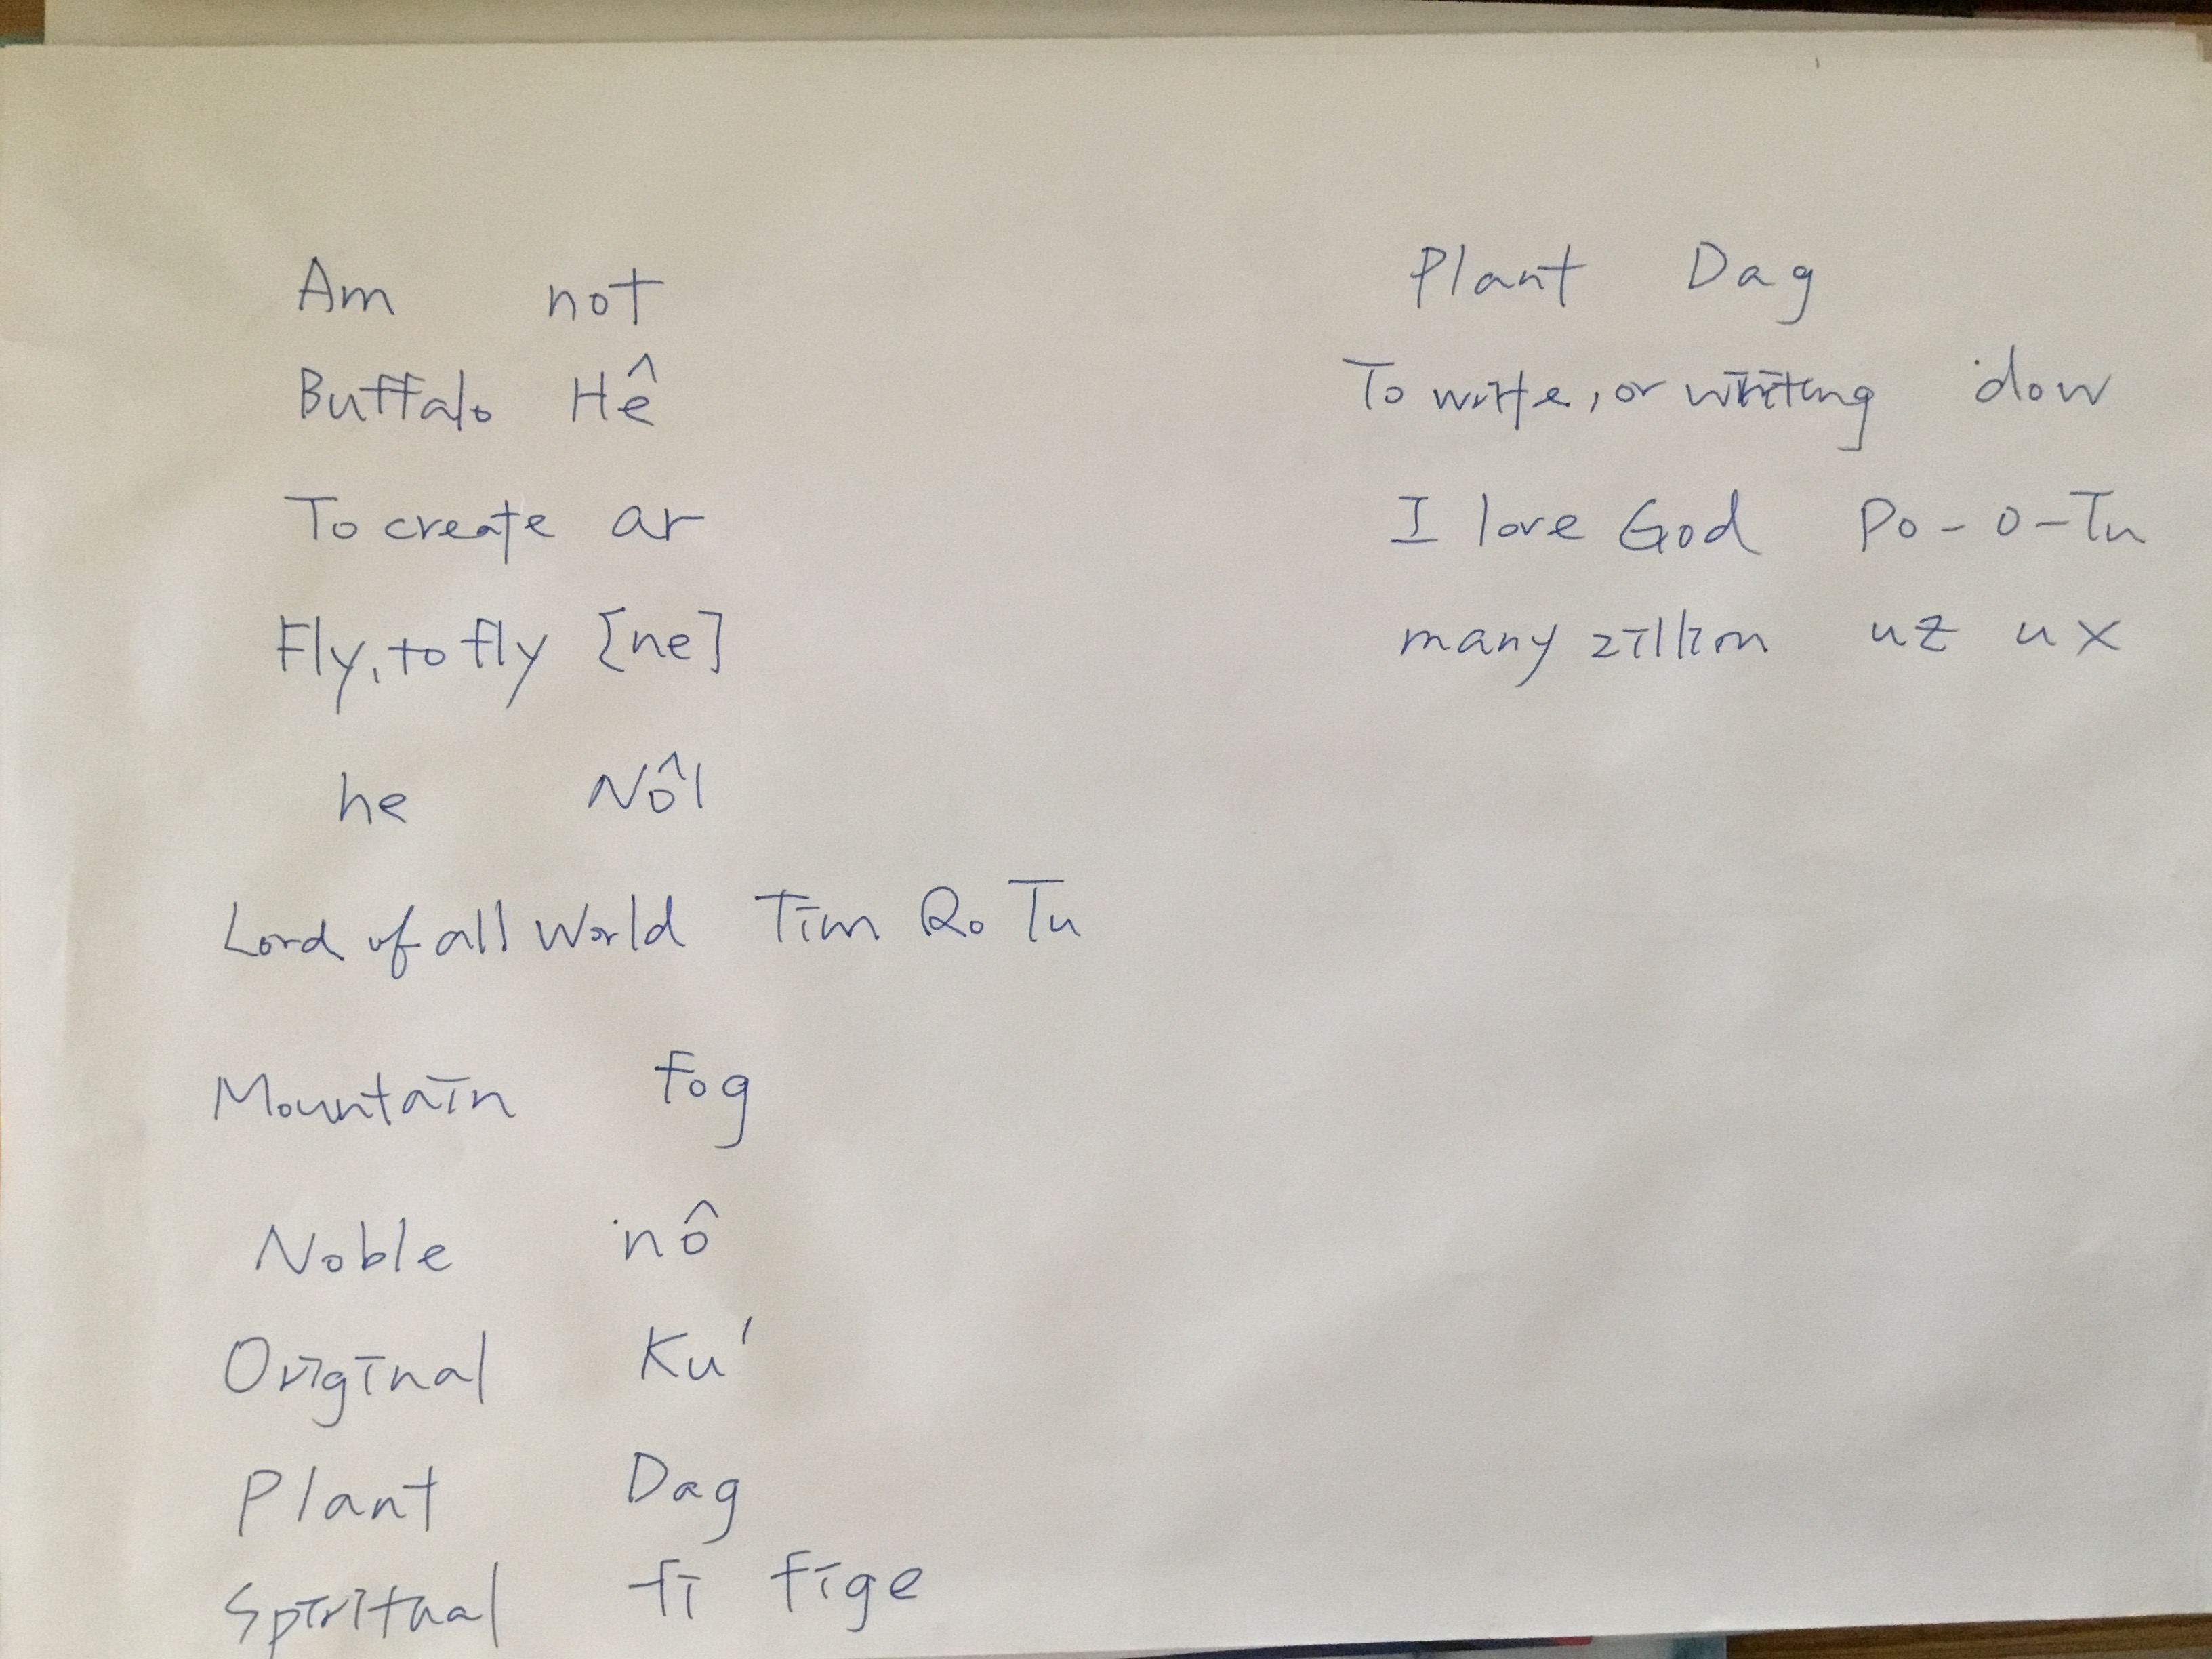 Am not
Buffalo Hê
To create ar
Fly, to fly [ne]
he Nôl
Lord of all World Tim Qo Tu
Mountain fog
Noble nô
Original Ku'
Plant Dag
Spiritual fi fige
Plant Dag
To write, or writing dow
I love God Po-o-Tu
many zillion uz ux